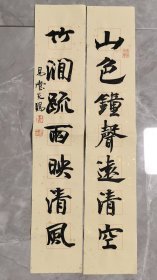 山色鐘聲遠清空
竹澗疏雨映清風